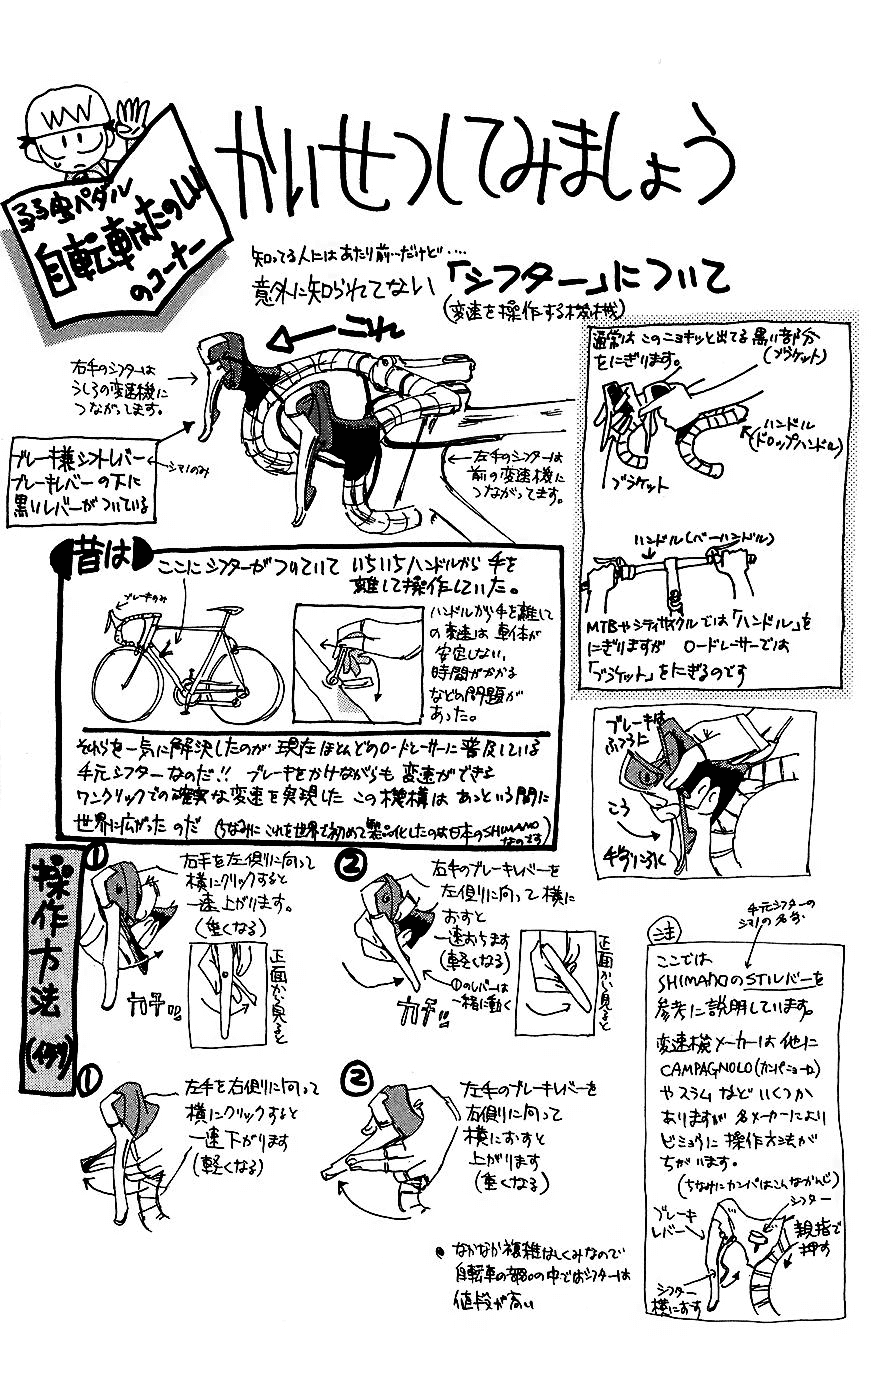 かいせつしてみましょう
弱虫ペダル
自転車はたのしい
のコーナー
知ってる人にはあたり前…だけど‥‥
意外に知られてない「シフター」について
(変速を操作する機械)
これ
右手のシフターは
うしろの変速機に
つながってます。
ブレーキ兼シフトレバー
シマノのみ
ブレーキレバーの下に
黒いレバーがついている
左手のシフターは
前の変速機に
つながってます。
通常はこのニョキッと出てる黒い部分
(ブラケット)
をにぎります。
ハンドル
(ドロップハンドル)
ブラケット
ハンドル(バーハンドル)
MTBやシティサイクルでは「ハンドル」を
にぎりますが ロードレーサーでは
「ブラケット」をにぎるのです
昔は
ここにシフターがついていて いちいちハンドルから手を
離して操作していた。
ブレーキのみ
ハンドルから手を離して
の変速は車体が
安定しない,
時間がかかる
などの問題が
あった。
それらを一気に解決したのが 現在ほとんどのロードレーサーに普及している
手元シフターなのだ!! ブレーキをかけながらも変速ができる
ワンクリックでの確実な変速を実現した この機構は あっという間に
世界に広がったのだ (ちなみにこれを世界で初めて製品化したのは日本のSHIMANO
なのです)
ブレーキは
ふつうに
こう
手前にひく
操作方法
(例)
①
右手を左側りに向って
横にクリックすると
一速上がります。
(重くなる)
カチ!!
正面から見ると
②
右手のブレーキレバーを
左側りに向って横に
おすと
一速おちます
(軽くなる)
①のレバーは
一緒に動く
カチ!!
正面から見ると
①
左手を右側りに向って
横にクリックすると
一速下がります
(軽くなる)
②
左手のブレーキレバーを
右側りに向って
横におすと
上がります
(重くなる)
手元シフターの
シマノの名称
注
ここでは
SHIMANOのSTIレバーを
参考に説明しています。
変速機メーカーは他に
CAMPAGNOLO(カンパニョーロ)
やスラムなどいくつか
ありますが各メーカーにより
ビミョウに操作方法が
ちがいます。
(ちなみにカンパはこんなかんじ)
シフター
ブレーキ
レバー
親指で
押す
シフター
横におす
●なかなか複雑なしくみなので
自転車の部品の中ではシフターは
値段が高い